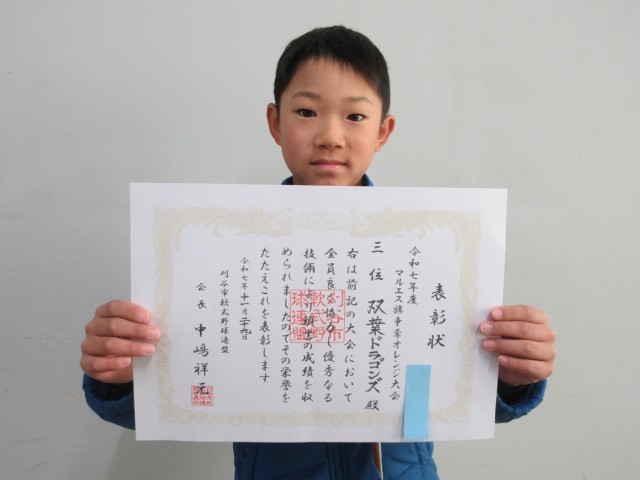 表彰状
令和七年度
マルエス旗争奪オレンジ大会
三位 双葉ドラゴンズ 殿
右は前記の大会において
全員良く協力し優秀なる
技倆により頭書の成績を収
められましたのでその栄誉を
たたえこれを表彰します
令和七年十一月二十九日
刈谷市軟式野球連盟
会長 中嶋祥元
刈谷市
軟式野
球連盟